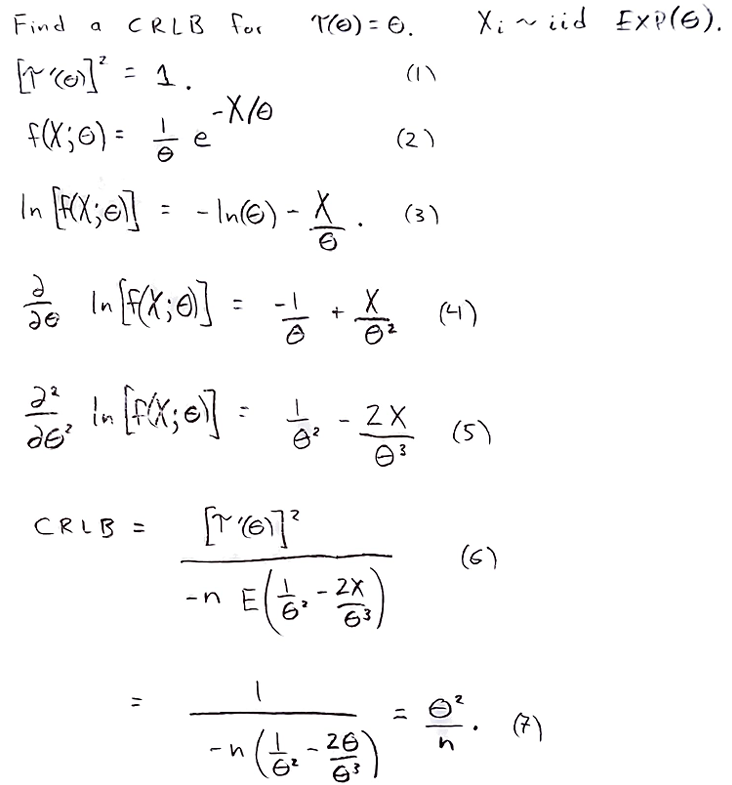 Find a CRLB for τ(θ) = θ. Xi ~ iid EXP(θ).
[τ'(θ)]² = 1. (1)
f(X;θ) = 1/θ e^(-X/θ) (2)
ln[f(X;θ)] = -ln(θ) - X/θ. (3)
∂/∂θ ln[f(X;θ)] = -1/θ + X/θ² (4)
∂²/∂θ² ln[f(X;θ)] = 1/θ² - 2X/θ³ (5)
CRLB = [τ'(θ)]² / (-n E(1/θ² - 2X/θ³)) (6)
= 1 / (-n(1/θ² - 2θ/θ³)) = θ²/n. (7)